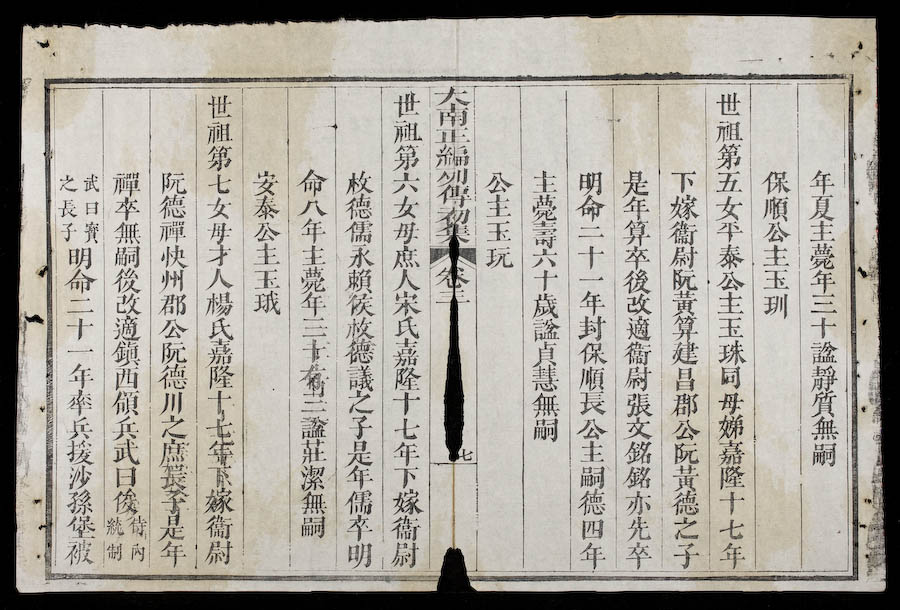 年夏主薨年三十諡靜質無嗣
保順公主玉玔
世祖第五女平泰公主玉珠同母娣嘉隆十七年
下嫁衞尉阮黃算建昌郡公阮黃德之子
是年算卒後改適衞尉張文銘銘亦先卒
明命二十一年封保順長公主嗣德四年
主薨壽六十歲諡貞慧無嗣
公主玉玩
大南正編列傳初集 卷三 七
世祖第六女母庶人宋氏嘉隆十七年下嫁衞尉
枚德儒永賴侯枚德議之子是年儒卒明
命八年主薨年三十有二諡莊潔無嗣
安泰公主玉珴
世祖第七女母才人楊氏嘉隆十七年下嫁衞尉
阮德禪快州郡公阮德川之庶長子是年
禪卒無嗣後改適鎮西領兵武曰俊侍內統制
武曰寶之長子明命二十一年率兵援沙孫堡被